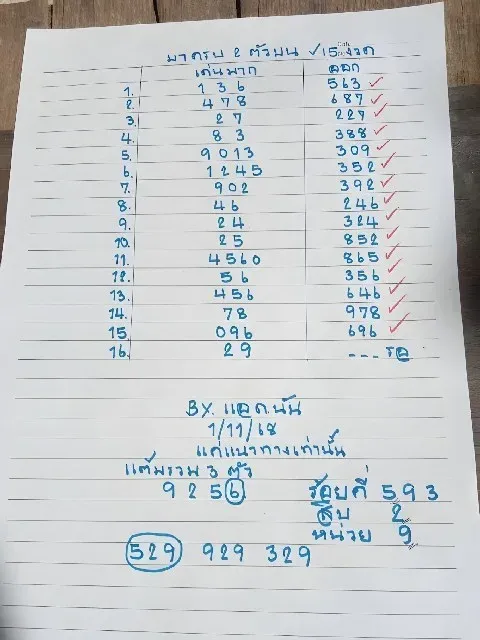 มาครบ 2 ตัวบน ✓15 งวด
เด่นมาก ออก
1. 136 563 ✓
2. 478 687 ✓
3. 27 227 ✓
4. 83 388 ✓
5. 9013 309 ✓
6. 1245 352 ✓
7. 902 392 ✓
8. 46 246 ✓
9. 24 324 ✓
10. 25 852 ✓
11. 4560 865 ✓
12. 56 356 ✓
13. 456 646 ✓
14. 78 978 ✓
15. 096 696 ✓
16. 29 --- รอ
BY. แอดนัน
1/11/68
แค่แนวทางเท่านั้น
แต้มรวม 3 ตัว
9256 ร้อยที่ 593
สิบ 2
หน่วย 9
529 929 329